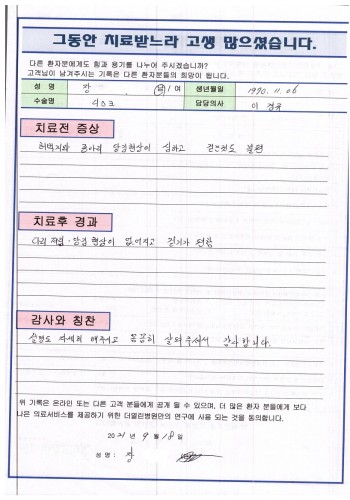 그동안 치료받느라 고생 많으셨습니다.
다른 환자분에게도 힘과 용기를 나누어 주시겠습니까?
고객님이 남겨주시는 기록은 다른 환자분들의 희망이 됩니다.
성 명 장 남 / 여 생년월일 1990. 11. 06
수술명 디스크 담당의사 이
치료전 증상
허벅지와 종아리 당김현상이 심하고 걷는것도 불편
치료후 경과
다리 저림·당김 현상이 없어지고 걷기가 편함
감사와 칭찬
설명도 자세히 해주시고 꼼꼼히 살펴주셔서 감사합니다.
위 기록은 온라인 또는 다른 고객 분들에게 공개 될 수 있으며, 더 많은 환자 분들에게 보다
나은 의료서비스를 제공하기 위한 더열린병원만의 연구에 사용 되는 것을 동의합니다.
2021 년 9 월 18 일
성 명 : 장